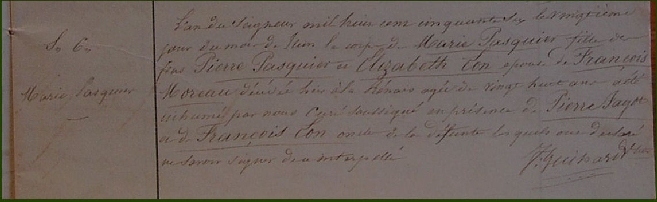 Sre Cre
Marie Pasquier
L'an du Seigneur mil huit cent cinquante six le vingtième
jour du mois de Juin le corps de Marie Pasquier fille de
feus Pierre Pasquier et Elizabeth Con épouse de François
Moreau décédée hier à la agée de vingt huit ans a été
inhumé par nous Curé soussigné en présence de Pierre
et de François Con oncle de la défunte lesquels ont déclaré
ne savoir signer de ce interpellé
J. Guinard